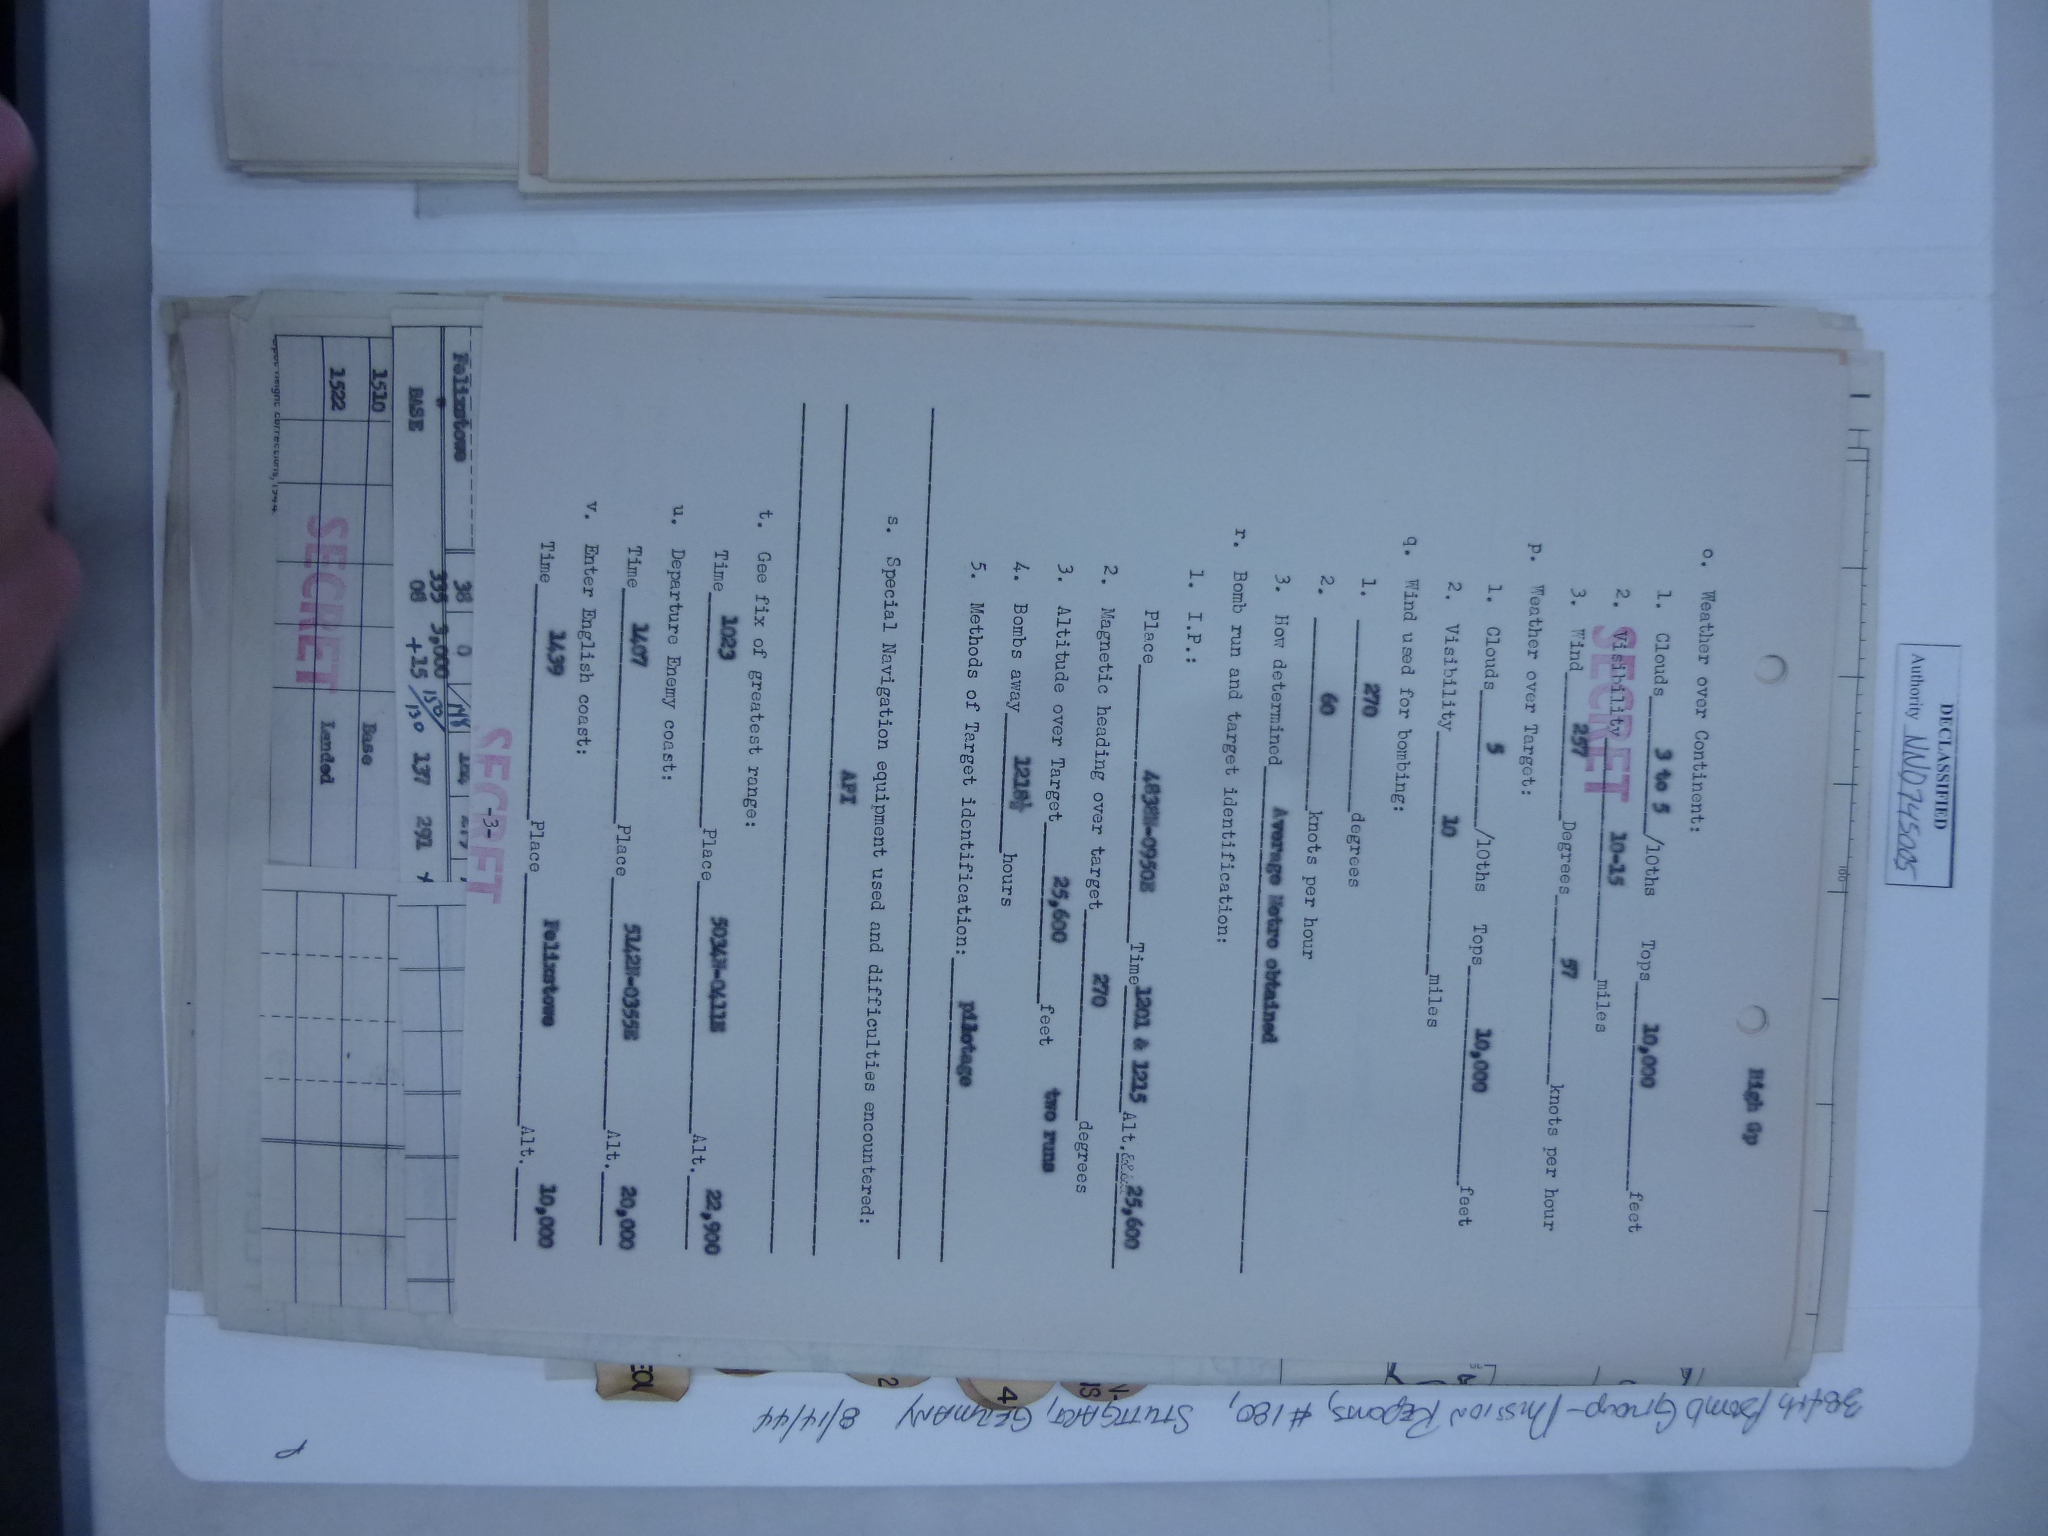 DECLASSIFIED
Authority NND 745005
High Gp
o. Weather over Continent:
1. Clouds 3 to 5 /10ths Tops 10,000 feet
2. Visibility 10-15 miles
3. Wind 257 Degrees 57 knots per hour
SECRET
p. Weather over Target:
1. Clouds 5 /10ths Tops 10,000 feet
2. Visibility 10 miles
q. Wind used for bombing:
1. 270 degrees
2. 60 knots per hour
3. How determined Average Metro obtained
r. Bomb run and target identification:
1. I.P.:
Place 4838N-0950E Time 1201 & 1215 Alt. 25,600
2. Magnetic heading over target 270 degrees
3. Altitude over Target 25,600 feet two runs
4. Bombs away 1218½ hours
5. Methods of Target identification: pilotage
s. Special Navigation equipment used and difficulties encountered:
API
t. Gee fix of greatest range:
Time 1023 Place 5034N-0411E Alt. 22,900
u. Departure Enemy coast:
Time 1407 Place 5142N-0355E Alt. 20,000
v. Enter English coast:
Time 1439 Place Felixstowe Alt. 10,000
-3-
SECRET
Felixstowe 38 0
" 335 9,000 150/
BASE 08 +15 /130 137 292
1510 Base
1522 Landed
SECRET
384th Bomb Group - Mission Reports, #180, STUTTGART, GERMANY 8/14/44